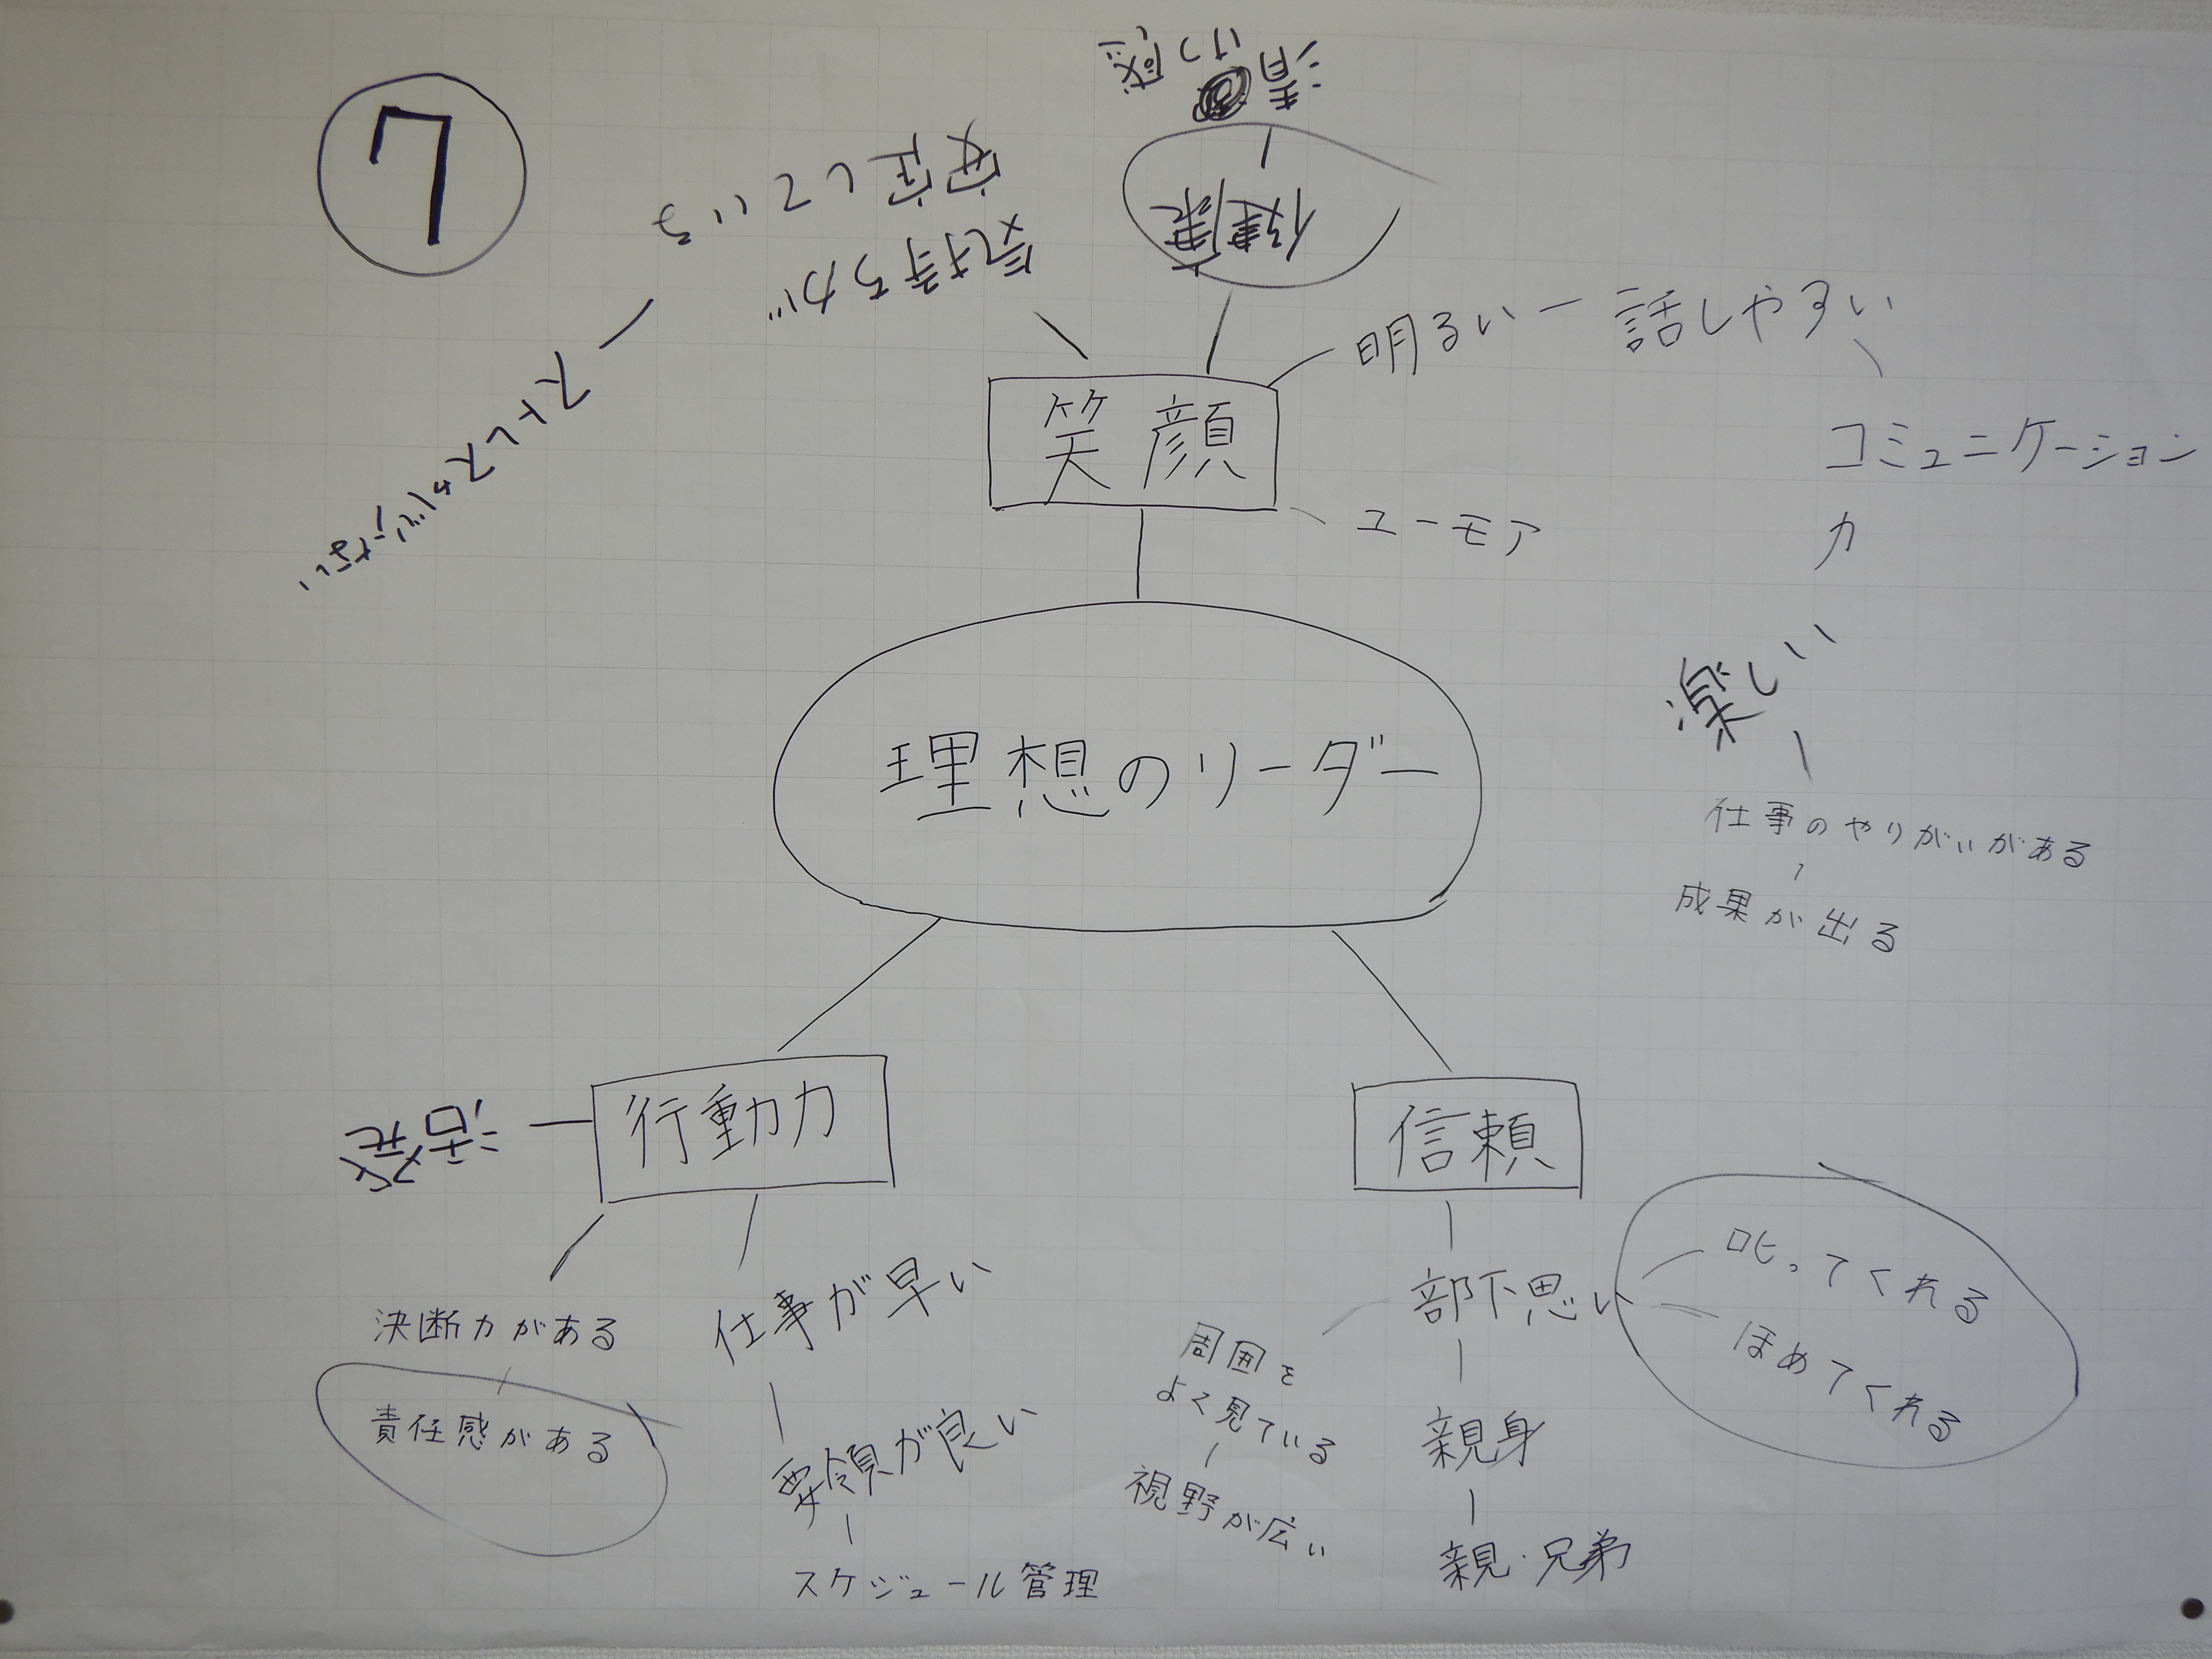 7
清けつ感
健康
気持ちが
安定している
ストレスを
明るい
話しやすい
コミュニケーション
力
笑顔
ユーモア
理想のリーダー
楽しい
仕事のやりがいがある
成果が出る
行動力
活発
決断力がある
責任感がある
仕事が早い
要領が良い
スケジュール管理
信頼
部下思い
叱ってくれる
ほめてくれる
周囲を
よく見ている
視野が広い
親身
親・兄弟